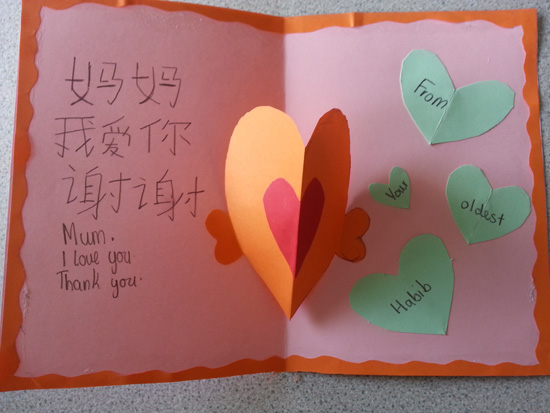 妈妈
我爱你
谢谢
Mum.
I love you.
Thank you.
From
Your
oldest
Habib